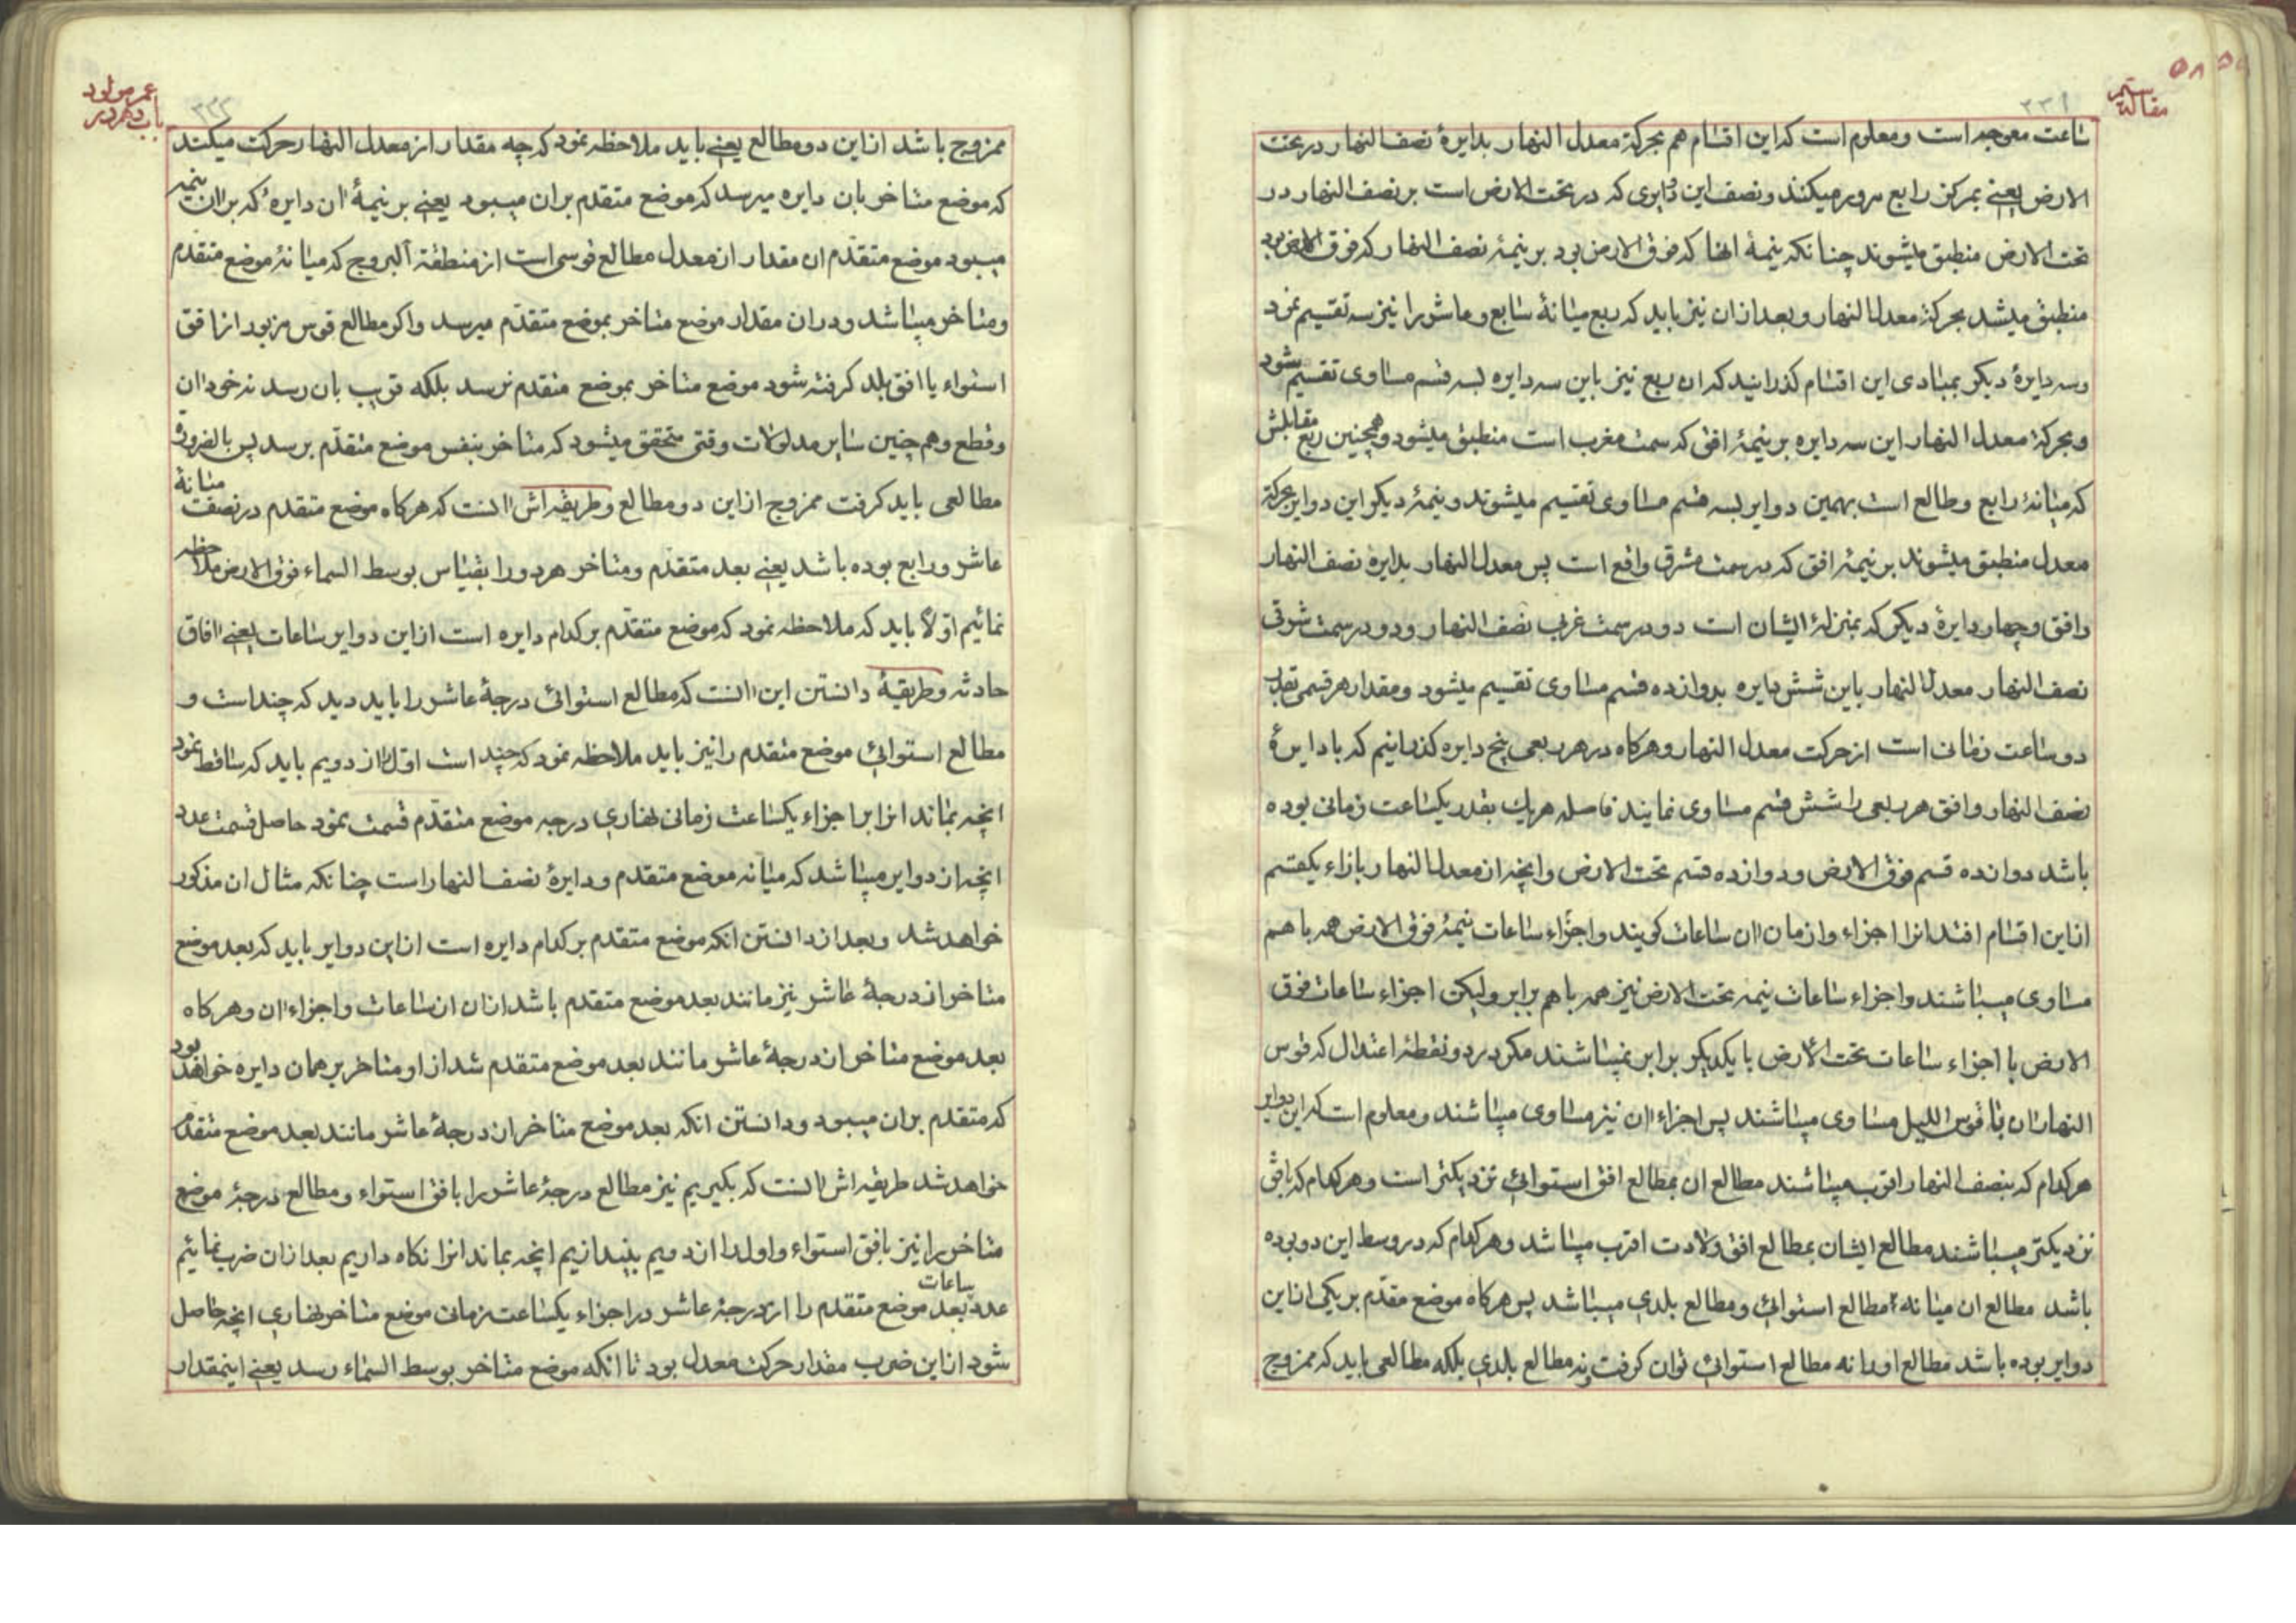 مقاله
۲۳۱
ساعت معوجه است و معلوم است که این اقسام هم بحرکة معدل النهار بدایرهٔ نصف النهار در تحت
الارض یعنی بمرکز رابع مرور میکنند و نصف این دوایری که در تحت الارض است بر نصف النهار در
تحت الارض منطبق میشوند چنانکه نیمهٔ انها که فوق الارض بود بر نیمهٔ نصف النهار که فوق الارض بود
منطبق میشد بحرکة معدل النهار و بعد از ان نیز باید که ربع میانهٔ سابع و عاشر را نیز سه تقسیم نمود
و سه دایرهٔ دیگر بمبادی این اقسام گذرانید که ان ربع نیز باین سه دایره بسه قسم مساوی تقسیم شود
و بحرکة معدل النهار این سه دایره بر نیمهٔ افق که سمت مغرب است منطبق میشود و همچنین ربع مقابلش
که میانهٔ رابع و طالع است بهمین دوایر بسه قسم مساوی تقسیم میشوند و نیمهٔ دیگر این دوایر بحرکة
معدل منطبق میشوند بر نیمهٔ افق که در سمت مشرق واقع است پس معدل النهار بدایره نصف النهار
و افق و چهار دایرهٔ دیگر که بمنزلهٔ ایشان است دو در سمت غربی نصف النهار و دو در سمت شرقی
نصف النهار معدل النهار باین شش دایره بدوازده قسم مساوی تقسیم میشود و مقدار هر قسمی بقدر
دو ساعت زمانی است از حرکت معدل النهار و هرگاه در هر ربعی پنج دایره گذرانیم که با دایرهٔ
نصف النهار و افق هر ربعی را شش قسم مساوی نمایند فاصله هر یک بقدر یکساعت زمانی بوده
باشد دوازده قسم فوق الارض و دوازده قسم تحت الارض و انچه از معدل النهار بازاء یکقسم
از این اقسام افتد انرا اجزاء و ازمان ان ساعات گویند و اجزاء ساعات نیمهٔ فوق الارض همه با هم
مساوی میباشند و اجزاء ساعات نیمه تحت الارض نیز همه با هم برابر ولیکن اجزاء ساعات فوق
الارض با اجزاء ساعات تحت الارض با یکدیگر برابر نمیباشند مگر در دو نقطهٔ اعتدال که قوس
النهار ان با قوس اللیل مساوی میباشند پس اجزاء ان نیز مساوی میباشند و معلوم است که این دوایر
هر کدام که بنصف النهار اقرب میباشند مطالع ان بمطالع افق استوائی نزدیکتر است و هر کدام که بافق
نزدیکتر میباشند مطالع ایشان بمطالع افق ولادت اقرب میباشد و هر کدام که در وسط این دو بوده
باشد مطالع ان میانه مطالع استوائی و مطالع بلدی میباشد پس هرگاه موضع مقدّم بر یکی از این
دوایر بوده باشد مطالع او را نه مطالع استوائی توان گرفت و نه مطالع بلدی بلکه مطالعی باید که ممزوج
عمر مولود
باب دهم در
۲۳۲
ممزوج باشد از این دو مطالع یعنی باید ملاحظه نمود که چه مقدار از معدل النهار حرکت میکند
که موضع متاخر بان دایره میرسد که موضع متقدم بران میبود یعنی بر نیمهٔ ان دایرهٔ که بران نیمه
میبود موضع متقدّم ان مقدار از معدل مطالع قوسی است از منطقة البروج که میانهٔ موضع متقدّم
و متاخر میباشد و در ان مقدار موضع متاخر بموضع متقدّم میرسد و اگر مطالع قوس مزبور از افق
استواء یا افق بلد گرفته شود موضع متاخر بموضع متقدم نرسد بلکه قریب بان رسد نه خود ان
و قطع و همچنین سایر مدلولات وقتی متحقق میشود که متاخر بنفس موضع متقدّم برسد پس بالضرورة
مطالعی باید گرفت ممزوج از این دو مطالع و طریقه اش انست که هرگاه موضع متقدم در نصف میانهٔ
عاشر و رابع بوده باشد یعنی بعد متقدّم و متاخر هر دو را بقیاس بوسط السماء فوق الارض ملاحظه
نمائیم اوّلاً باید که ملاحظه نمود که موضع متقدّم بر کدام دایره است از این دوایر ساعات یعنی افاق
حادثه و طریقهٔ دانستن این انست که مطالع استوائی درجهٔ عاشر را باید دید که چند است و
مطالع استوائی موضع متقدم را نیز باید ملاحظه نمود که چند است اوّل را از دویم باید که ساقط نمود
انچه بماند انرا بر اجزاء یکساعت زمانی نهاری درجه موضع متقدّم قسمت نمود حاصل قسمت عدد
انچه از دوایر میباشد که میانه موضع متقدم و دایرهٔ نصف النهار است چنانکه مثال ان مذکور
خواهد شد و بعد از دانستن انکه موضع متقدم بر کدام دایره است از این دوایر باید که بعد موضع
متاخر از درجهٔ عاشر نیز مانند بعد موضع متقدم باشد از ان ساعات و اجزاء ان و هرگاه
بعد موضع متاخر از درجهٔ عاشر مانند بعد موضع متقدم شد از او متاخر بر همان دایره خواهد بود
که متقدم بران میبود و دانستن انکه بعد موضع متاخر از درجهٔ عاشر مانند بعد موضع متقدم
خواهد شد طریقه اش انست که بگیریم نیز مطالع درجهٔ عاشر را بافق استواء و مطالع درجهٔ موضع
متاخر را نیز بافق استواء و اول را از دویم بیندازیم انچه بماند انرا نگاه داریم بعد از ان ضرب نمائیم
عدد ساعات بعد موضع متقدم را از درجهٔ عاشر در اجزاء یکساعت زمانی موضع متاخر نهاری انچه حاصل
شود از این ضرب مقدار حرکت معدل بود تا انکه موضع متاخر بوسط السماء رسد یعنی اینمقدار